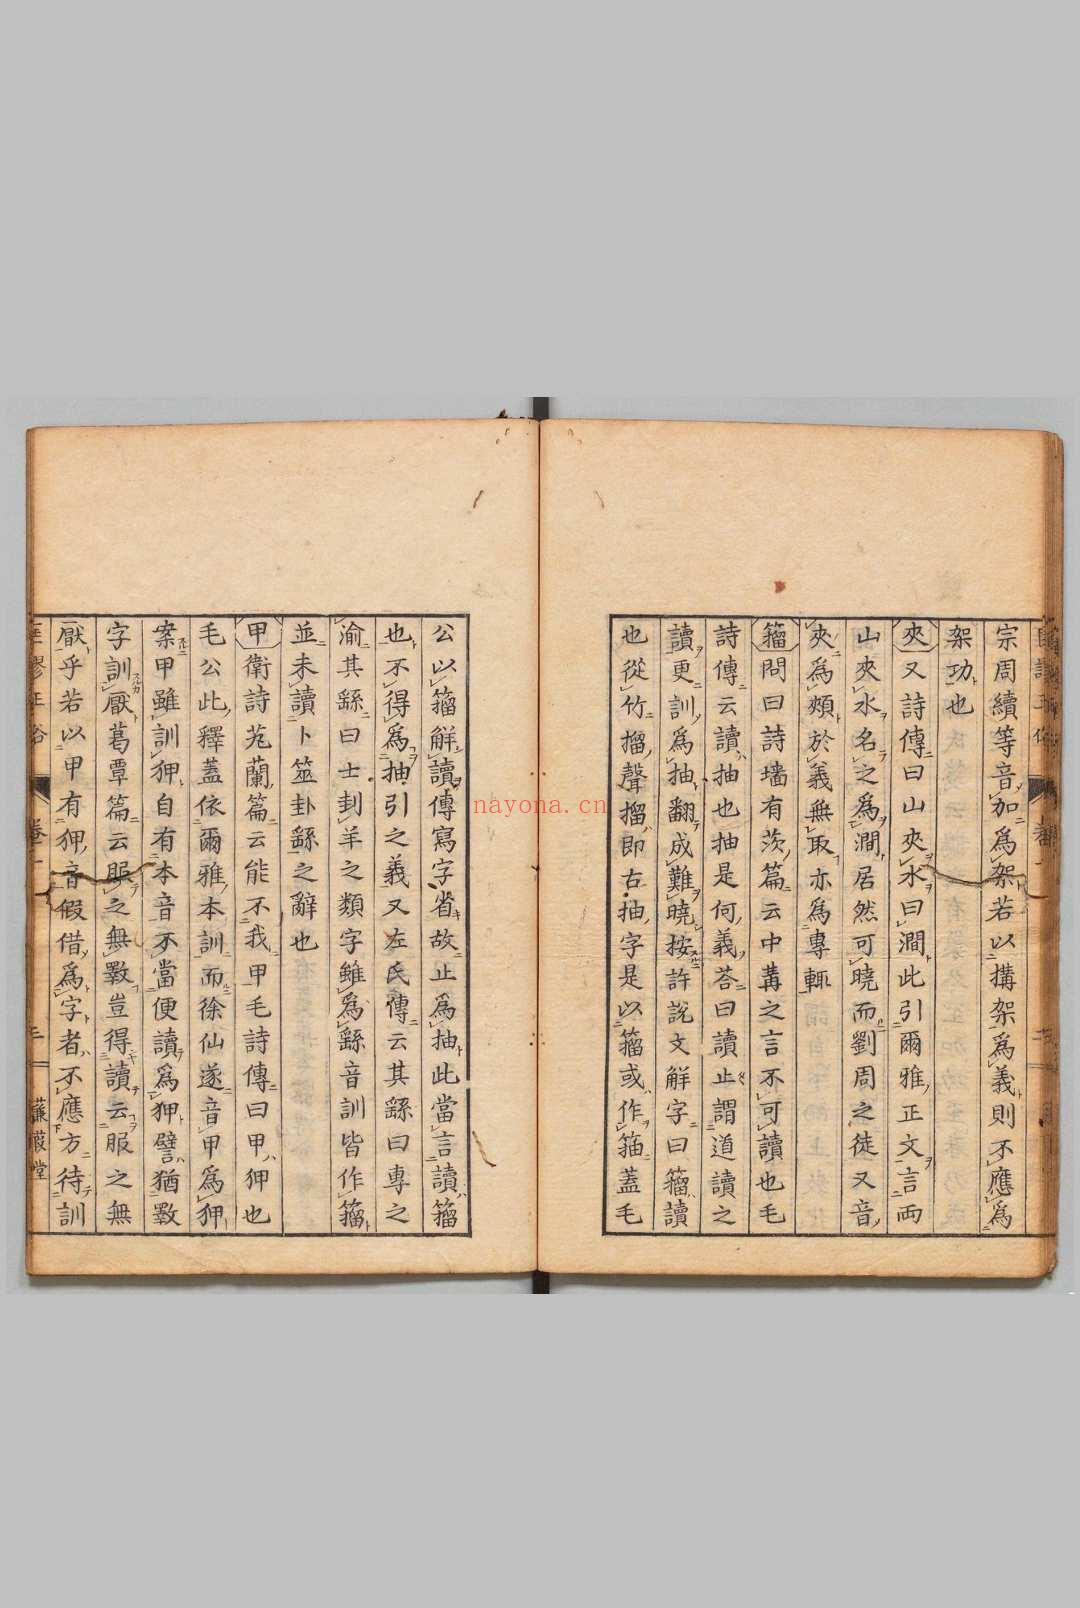 宗周續等音加為架若以搆架為義則不應為
架功也
夾又詩傳曰山夾水曰澗此引爾雅正文言両
山夾水名之為澗居然可曉而劉周之徒又音
夾為頰於義無取亦為專輒
籀問曰詩墻有茨篇云中冓之言不可讀也毛
詩傳云讀抽也抽是何義荅曰讀止謂道讀之
讀更訓為抽翻成難曉按許說文解字曰籀讀
也從竹㩅聲㩅即古抽字是以籀或作䈏蓋毛
公以籀解讀傳寫字省故止為抽此當言讀籀
也不得為抽引之義又左氏傳云其繇曰專之
渝其繇曰士刲羊之類字雖為繇音訓皆作籀
並未讀卜筮卦繇之辭也
甲衛詩芄蘭篇云能不我甲毛詩傳曰甲狎也
毛公此釋蓋依爾雅本訓而徐仙遂音甲為狎
案甲雖訓狎自有本音不當便讀為狎譬猶斁
字訓厭葛覃篇云服之無斁豈得讀云服之無
厭乎若以甲有狎音假借為字者不應方待訓
匡謬正俗
卷一
nayona.cn